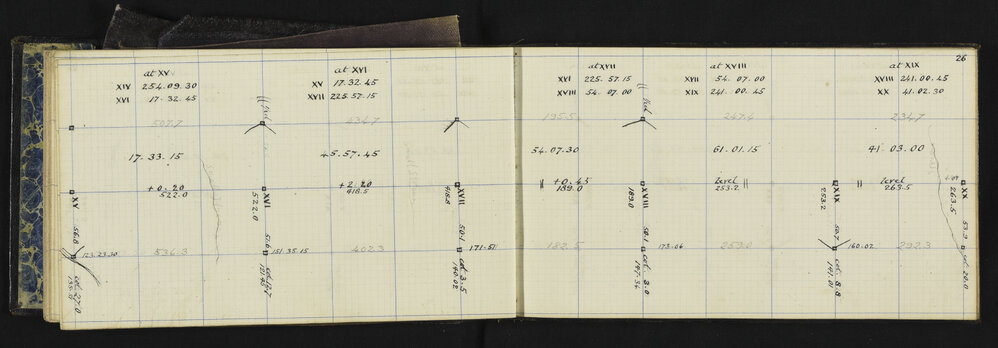 26
at XV
XIV 254.09.30
XVI 17.32.45
at XVI
XV 17.32.45
XVII 225.57.15
at XVII
XVI 225.57.15
XVIII 54.07.00
at XVIII
XVII 54.07.00
XIX 241.00.45
at XIX
XVIII 241.00.45
XX 41.02.30
507.7
434.7
195.5
247.4
234.7
17.33.15
45.57.45
54.07.30
61.01.15
41.03.00
+0.20
522.0
+2.20
418.5
+0.45
189.0
level
253.2
level
263.5
XV
XVI
522.0
XVII
418.5
XVIII
189.0
XIX
253.2
XX
263.5
56.8
51.6
50.1
50.1
50.7
53.9
123.23.30
536.3
151.35.15
402.3
171.51
182.5
173.06
253.0
160.02
292.3
col. 27.0
col. 3.5
140.02
col. 8.0
147.34
col. 8.8
141.01
col. 20.0